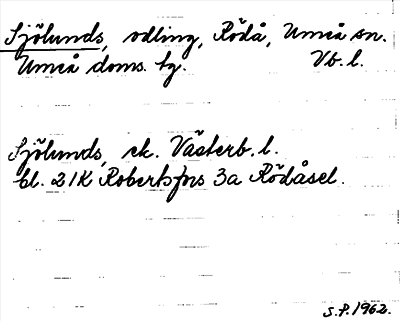 Sjölunds, odling, Rödå, Umeå sn.
Umeå doms. tg. Vb. l.
Sjölunds, ek. Västerb. l.
bl. 21K Robertsfors 3a Rödåsel.
S.P. 1962.